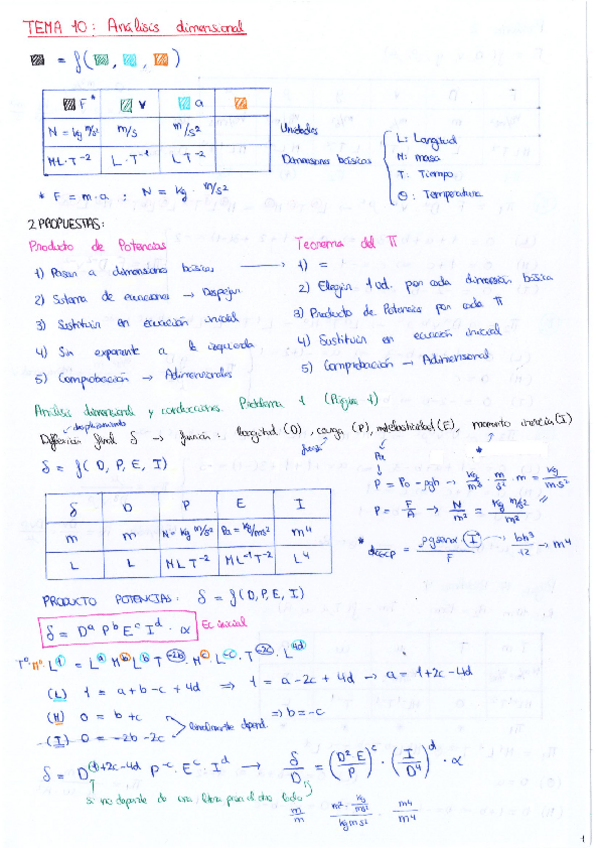 TEMA 10: Análisis dimensional
= f( , , )
F* V a
N = kg m/s² m/s m/s² Unidades
ML·T⁻² L·T⁻¹ LT⁻² Dimensiones básicas
L: Longitud
M: masa
T: Tiempo
Θ: Temperatura
* F = m·a ; N = kg · m/s²
2 PROPUESTAS:
Producto de Potencias
1) Pasar a dimensiones básicas →
2) Sistema de ecuaciones → Despejar
3) Sustituir en ecuación inicial
4) Sin exponente a la izquierda
5) Comprobación → Adimensionales
Teorema del Π
1) =
2) Elegir 1 vd. por cada dimensión básica
3) Producto de Potencias por cada Π
4) Sustituir en ecuación inicial
5) Comprobación → Adimensional
Análisis dimensional y conducciones. Problema 1 (Página 1)
desplazamiento
δ → función: longitud (D), carga (P), (E), momento inercia (I)
fuerza
Pa
δ = f( D, P, E, I )
P = P₀ - ρgh → kg/m³ · m/s² · m = kg/m·s²
P = F/A → N/m² = kg m/s² / m²
δ D P E I
m m N = kg m/s² Pa = kg/ms² m⁴
L L MLT⁻² ML⁻¹T⁻² L⁴
* = ρg senα (I) / F → bh³/12 → m⁴
PRODUCTO POTENCIAS: δ = f(D,P,E,I)
δ = Dᵃ Pᵇ Eᶜ Iᵈ · α Ec inicial
T⁰·M⁰·L¹ = Lᵃ Mᵇ Lᵇ T⁻²ᵇ · Mᶜ · L⁻ᶜ · T⁻²ᶜ · L⁴ᵈ
(L) 1 = a+b-c+4d ⇒ 1 = a-2c+4d → a = 1+2c-4d
(M) 0 = b+c
linealmente depend. ⇒ b=-c
(T) 0 = -2b-2c
δ = D¹⁺²ᶜ⁻⁴ᵈ P⁻ᶜ · Eᶜ Iᵈ → δ/D = (D²·E/P)ᶜ · (I/D⁴)ᵈ · α
si no depende de una, letra para el otro lado
m/m m²·kg/ms² / kg m s² m⁴/m⁴
1